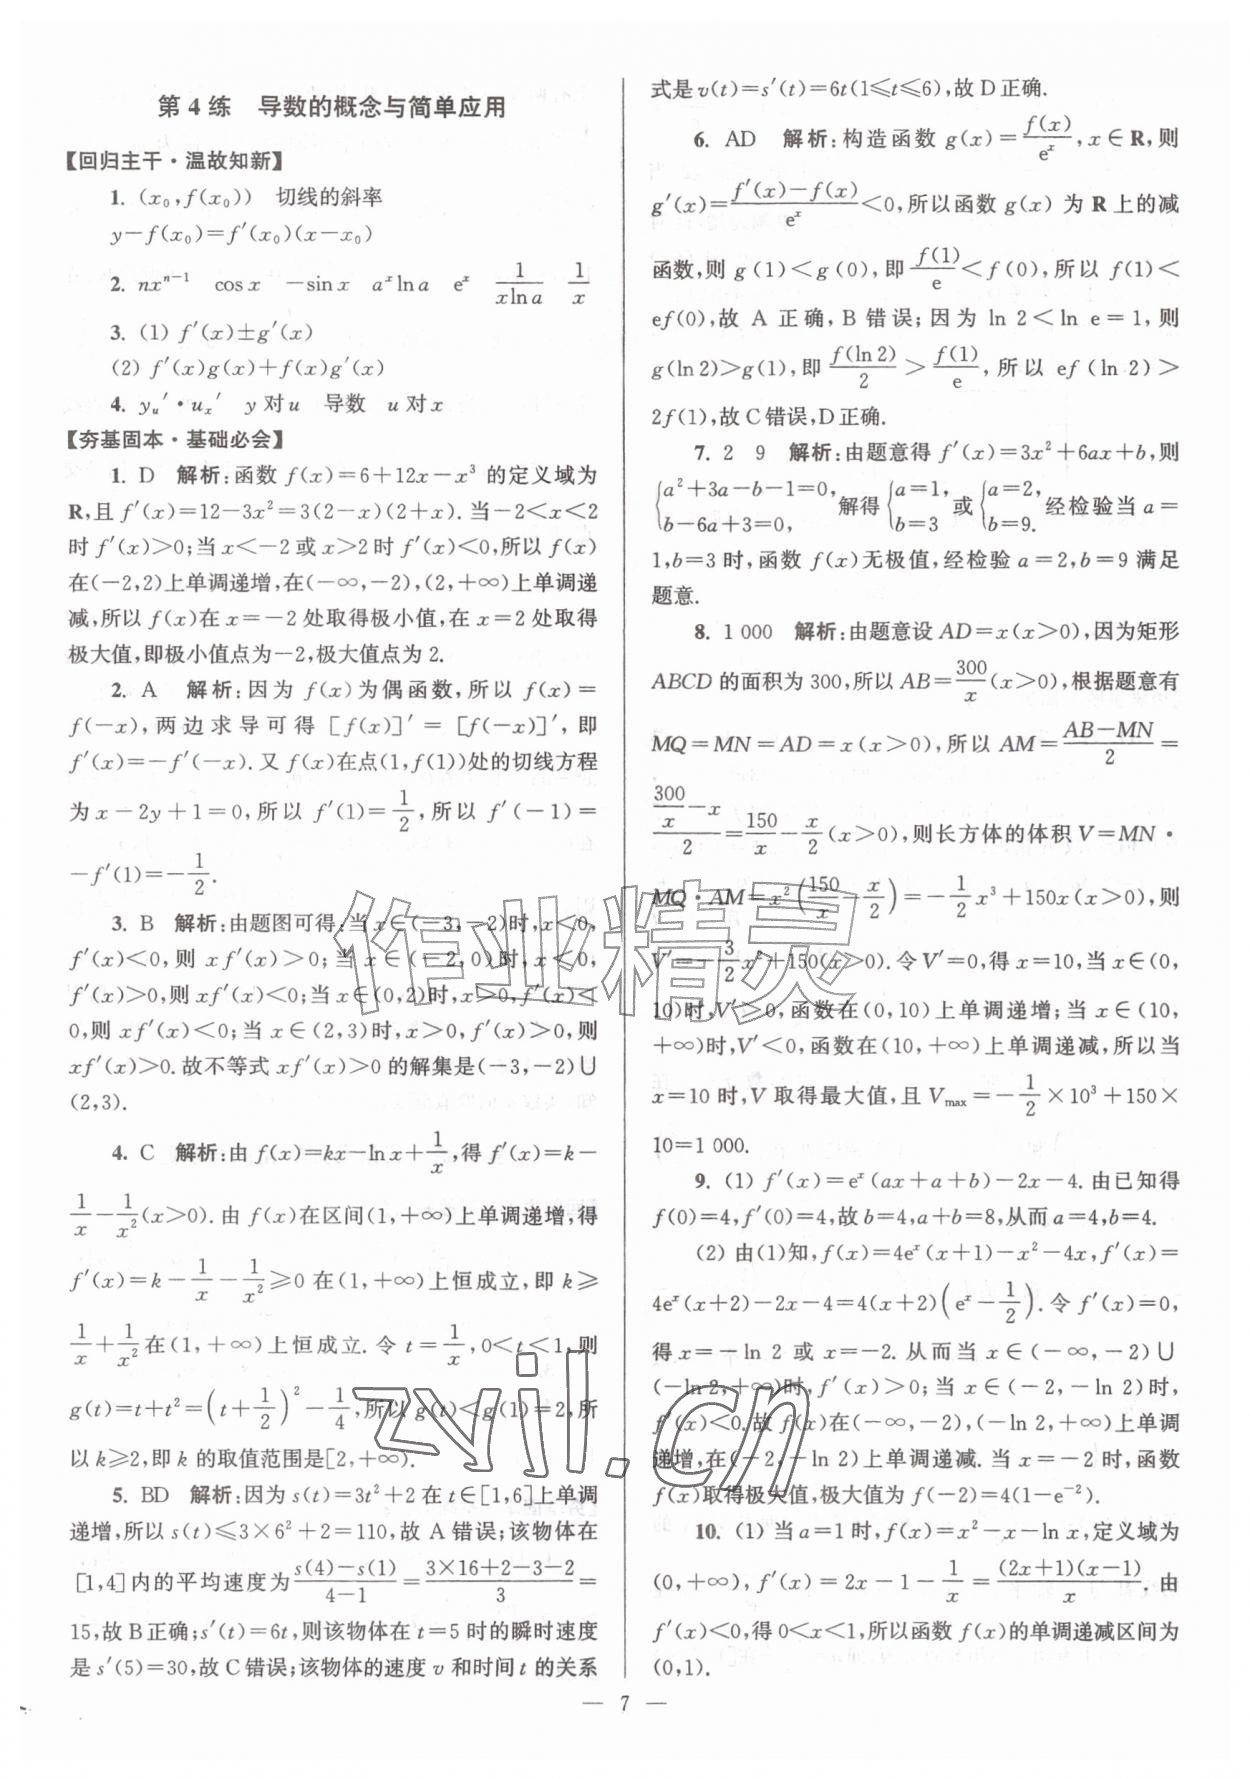 第 4 练　导数的概念与简单应用
【回归主干·温故知新】
1. (x₀,f(x₀))　切线的斜率
y−f(x₀)=f′(x₀)(x−x₀)
2. nxⁿ⁻¹　cos x　−sin x　aˣln a　eˣ　1/(xln a)　1/x
3. (1) f′(x)±g′(x)
(2) f′(x)g(x)+f(x)g′(x)
4. yᵤ′·uₓ′　y 对 u　导数　u 对 x
【夯基固本·基础必会】
1. D　解析:函数 f(x)=6+12x−x³ 的定义域为
R,且 f′(x)=12−3x²=3(2−x)(2+x).当−2<x<2
时 f′(x)>0;当 x<−2 或 x>2 时 f′(x)<0,所以 f(x)
在(−2,2)上单调递增,在(−∞,−2),(2,+∞)上单调递
减,所以 f(x)在 x=−2 处取得极小值,在 x=2 处取得
极大值,即极小值点为−2,极大值点为 2.
2. A　解析:因为 f(x)为偶函数,所以 f(x)=
f(−x),两边求导可得[f(x)]′=[f(−x)]′,即
f′(x)=−f′(−x).又 f(x)在点(1,f(1))处的切线方程
为 x−2y+1=0,所以 f′(1)=1/2,所以 f′(−1)=
−f′(1)=−1/2.
3. B　解析:由题图可得:当 x∈(−3,−2)时,x<0,
f′(x)<0,则 xf′(x)>0;当 x∈(−2,0)时,x<0,
f′(x)>0,则 xf′(x)<0;当 x∈(0,2)时,x>0,f′(x)<
0,则 xf′(x)<0;当 x∈(2,3)时,x>0,f′(x)>0,则
xf′(x)>0.故不等式 xf′(x)>0 的解集是(−3,−2)∪
(2,3).
4. C　解析:由 f(x)=kx−ln x+1/x,得 f′(x)=k−
1/x−1/x²(x>0).由 f(x)在区间(1,+∞)上单调递增,得
f′(x)=k−1/x−1/x²≥0 在(1,+∞)上恒成立,即 k≥
1/x+1/x²在(1,+∞)上恒成立.令 t=1/x,0<t<1,则
g(t)=t+t²=(t+1/2)²−1/4,所以 g(t)<g(1)=2,所
以 k≥2,即 k 的取值范围是[2,+∞).
5. BD　解析:因为 s(t)=3t²+2 在 t∈[1,6]上单调
递增,所以 s(t)≤3×6²+2=110,故 A 错误;该物体在
[1,4]内的平均速度为(s(4)−s(1))/(4−1)=(3×16+2−3−2)/3=
15,故 B正确;s′(t)=6t,则该物体在 t=5 时的瞬时速度
是 s′(5)=30,故 C 错误;该物体的速度 v 和时间 t 的关系
式是 v(t)=s′(t)=6t(1≤t≤6),故 D 正确.
6. AD　解析:构造函数 g(x)=f(x)/eˣ,x∈R,则
g′(x)=(f′(x)−f(x))/eˣ<0,所以函数 g(x) 为 R 上的减
函数,则 g(1)<g(0),即 f(1)/e<f(0),所以 f(1)<
ef(0),故 A 正确,B 错误;因为 ln 2<ln e=1,则
g(ln 2)>g(1),即 f(ln 2)/2>f(1)/e,所以 ef(ln 2)>
2f(1),故 C 错误,D 正确.
7. 2　9　解析:由题意得 f′(x)=3x²+6ax+b,则
{a²+3a−b−1=0, b−6a+3=0, 解得{a=1, b=3 或{a=2, b=9. 经检验当 a=
1,b=3 时,函数 f(x)无极值,经检验 a=2,b=9 满足
题意.
8. 1 000　解析:由题意设 AD=x(x>0),因为矩形
ABCD 的面积为 300,所以 AB=300/x(x>0),根据题意有
MQ=MN=AD=x(x>0),所以 AM=(AB−MN)/2=
(300/x−x)/2=150/x−x/2(x>0),则长方体的体积 V=MN·
MQ·AM=x²(150/x−x/2)=−1/2x³+150x(x>0),则
V′=−3/2x²+150(x>0).令 V′=0,得 x=10,当 x∈(0,
10)时,V′>0,函数在(0,10)上单调递增;当 x∈(10,
+∞)时,V′<0,函数在(10,+∞)上单调递减,所以当
x=10 时,V 取得最大值,且 Vmax=−1/2×10³+150×
10=1 000.
9. (1) f′(x)=eˣ(ax+a+b)−2x−4.由已知得
f(0)=4,f′(0)=4,故 b=4,a+b=8,从而 a=4,b=4.
(2) 由(1)知,f(x)=4eˣ(x+1)−x²−4x,f′(x)=
4eˣ(x+2)−2x−4=4(x+2)(eˣ−1/2).令 f′(x)=0,
得 x=−ln 2 或 x=−2.从而当 x∈(−∞,−2)∪
(−ln 2,+∞)时,f′(x)>0;当 x∈(−2,−ln 2)时,
f′(x)<0.故 f(x)在(−∞,−2),(−ln 2,+∞)上单调
递增,在(−2,−ln 2)上单调递减.当 x=−2 时,函数
f(x)取得极大值,极大值为 f(−2)=4(1−e⁻²).
10. (1) 当 a=1 时,f(x)=x²−x−ln x,定义域为
(0,+∞),f′(x)=2x−1−1/x=((2x+1)(x−1))/x.由
f′(x)<0,得 0<x<1,所以函数 f(x)的单调递减区间为
(0,1).
— 7 —
作业精灵
zyjl.cn